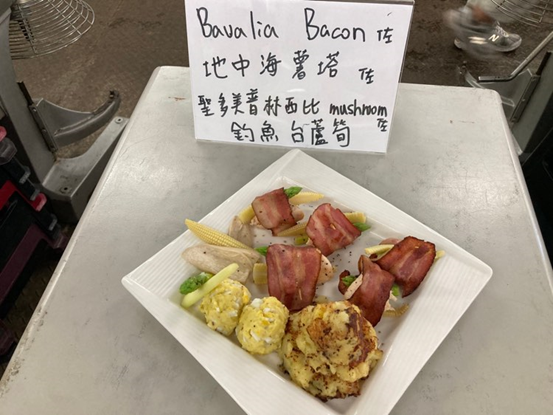 Bavalia Bacon 佐
地中海薯塔 佐
聖多美普林西比 mushroom 佐
釣魚台蘆筍